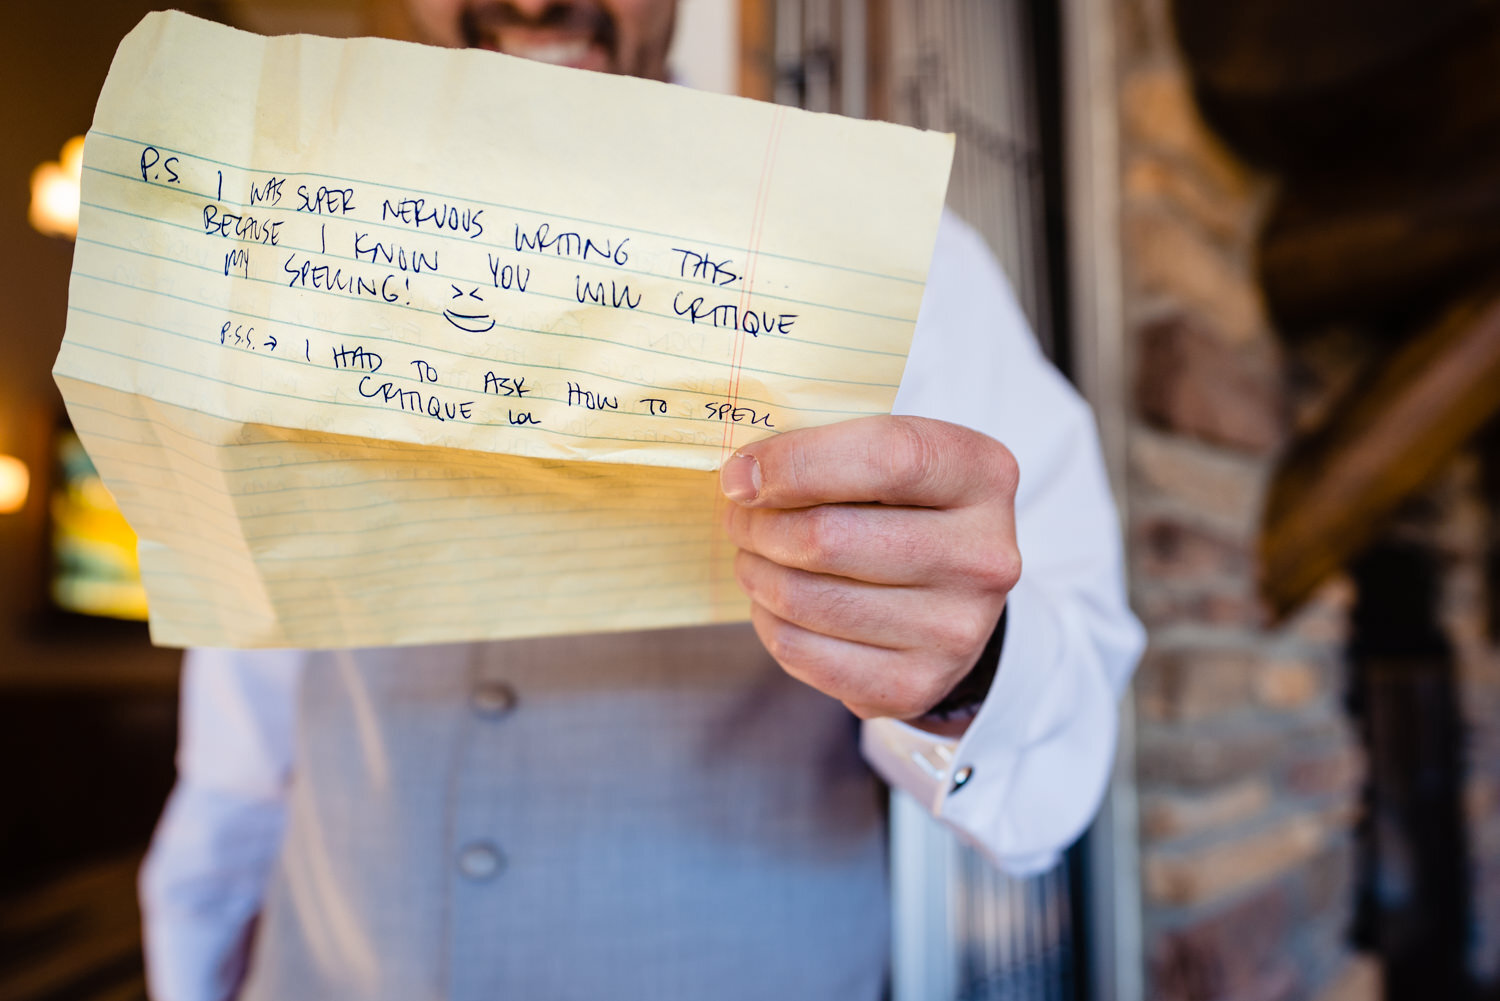 P.S. I WAS SUPER NERVOUS WRITING THIS...
BECAUSE I KNOW YOU WILL CRITIQUE
MY SPELLING! ><
P.S.S. → I HAD TO ASK HOW TO SPELL
CRITIQUE LOL